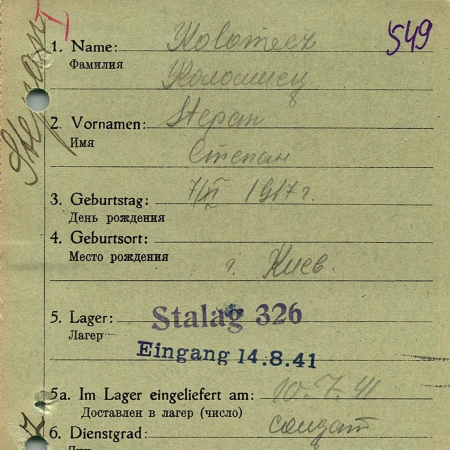 549
Stepan I
1. Name: Kolomeez
Фамилия Коломиец
2. Vornamen: Stepan
Имя Степан
3. Geburtstag: 7/XI 1917 г.
День рождения
4. Geburtsort:
Место рождения г. Киев.
5. Lager: Stalag 326
Лагер
Eingang 14.8.41
5a. Im Lager eingeliefert am: 10.7.41
Доставлен в лагер (число)
6. Dienstgrad: солдат